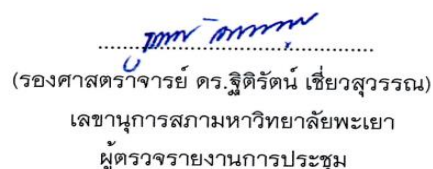 (รองศาสตราจารย์ ดร.ฐิติรัตน์ เชี่ยวสุวรรณ)
เลขานุการสภามหาวิทยาลัยพะเยา
ผู้ตรวจรายงานการประชุม